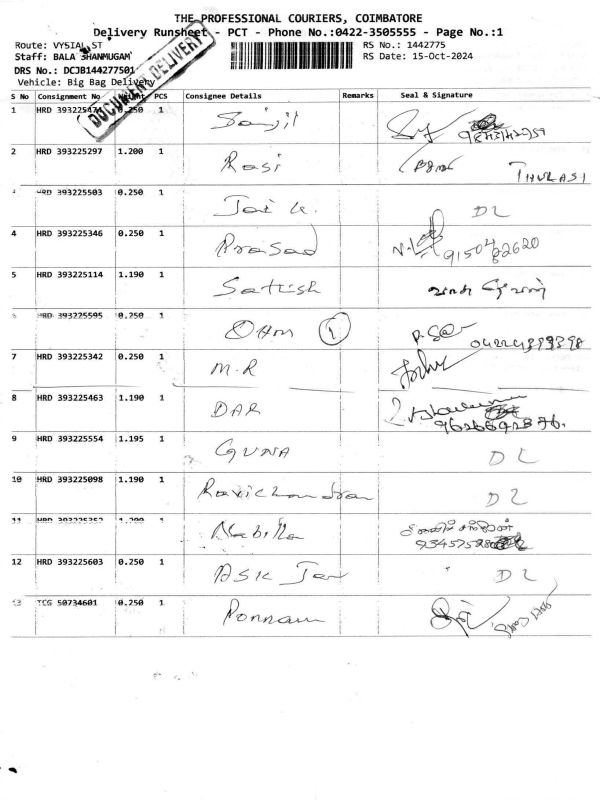 THE PROFESSIONAL COURIERS, COIMBATORE
Delivery Runsheet - PCT - Phone No.:0422-3505555 - Page No.:1
Route: VYSIAL ST
RS No.: 1442775
Staff: BALA SHANMUGAM
RS Date: 15-Oct-2024
DRS No.: DCJB144277501
Vehicle: Big Bag Delivery
DOCUMENT DELIVERY
S No Consignment No Weight PCS Consignee Details Remarks Seal & Signature
1 HRD 0.250 1 Sanjil
2 HRD 393225297 1.200 1 Rasi THULASI
HRD 393225503 0.250 1 Jai K. DL
4 HRD 393225346 0.250 1 Prasad
5 HRD 393225114 1.190 1 Sathish
HRD 393225595 0.250 1 OHM 1
7 HRD 393225342 0.250 1 M.R
8 HRD 393225463 1.190 1 DAR
9 HRD 393225554 1.195 1 GUNA DL
10 HRD 393225098 1.190 1 Ravichandran DL
11 HRD 393225352 1.200 1 Nabilla
12 HRD 393225603 0.250 1 ASK Jar DL
13 TCG 50734601 0.250 1 Ponnam